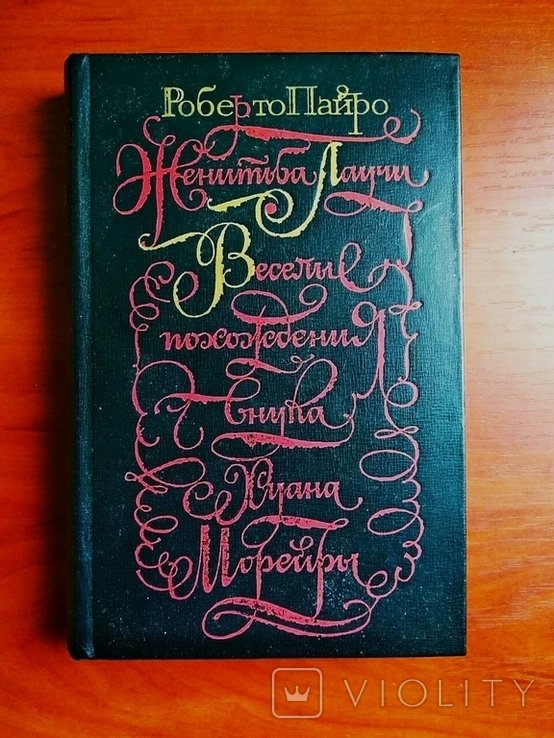 Роберто Пайро
Женитьба Лаучи
Веселые
похождения
внука
Хуана
Морейры
VIOLITY